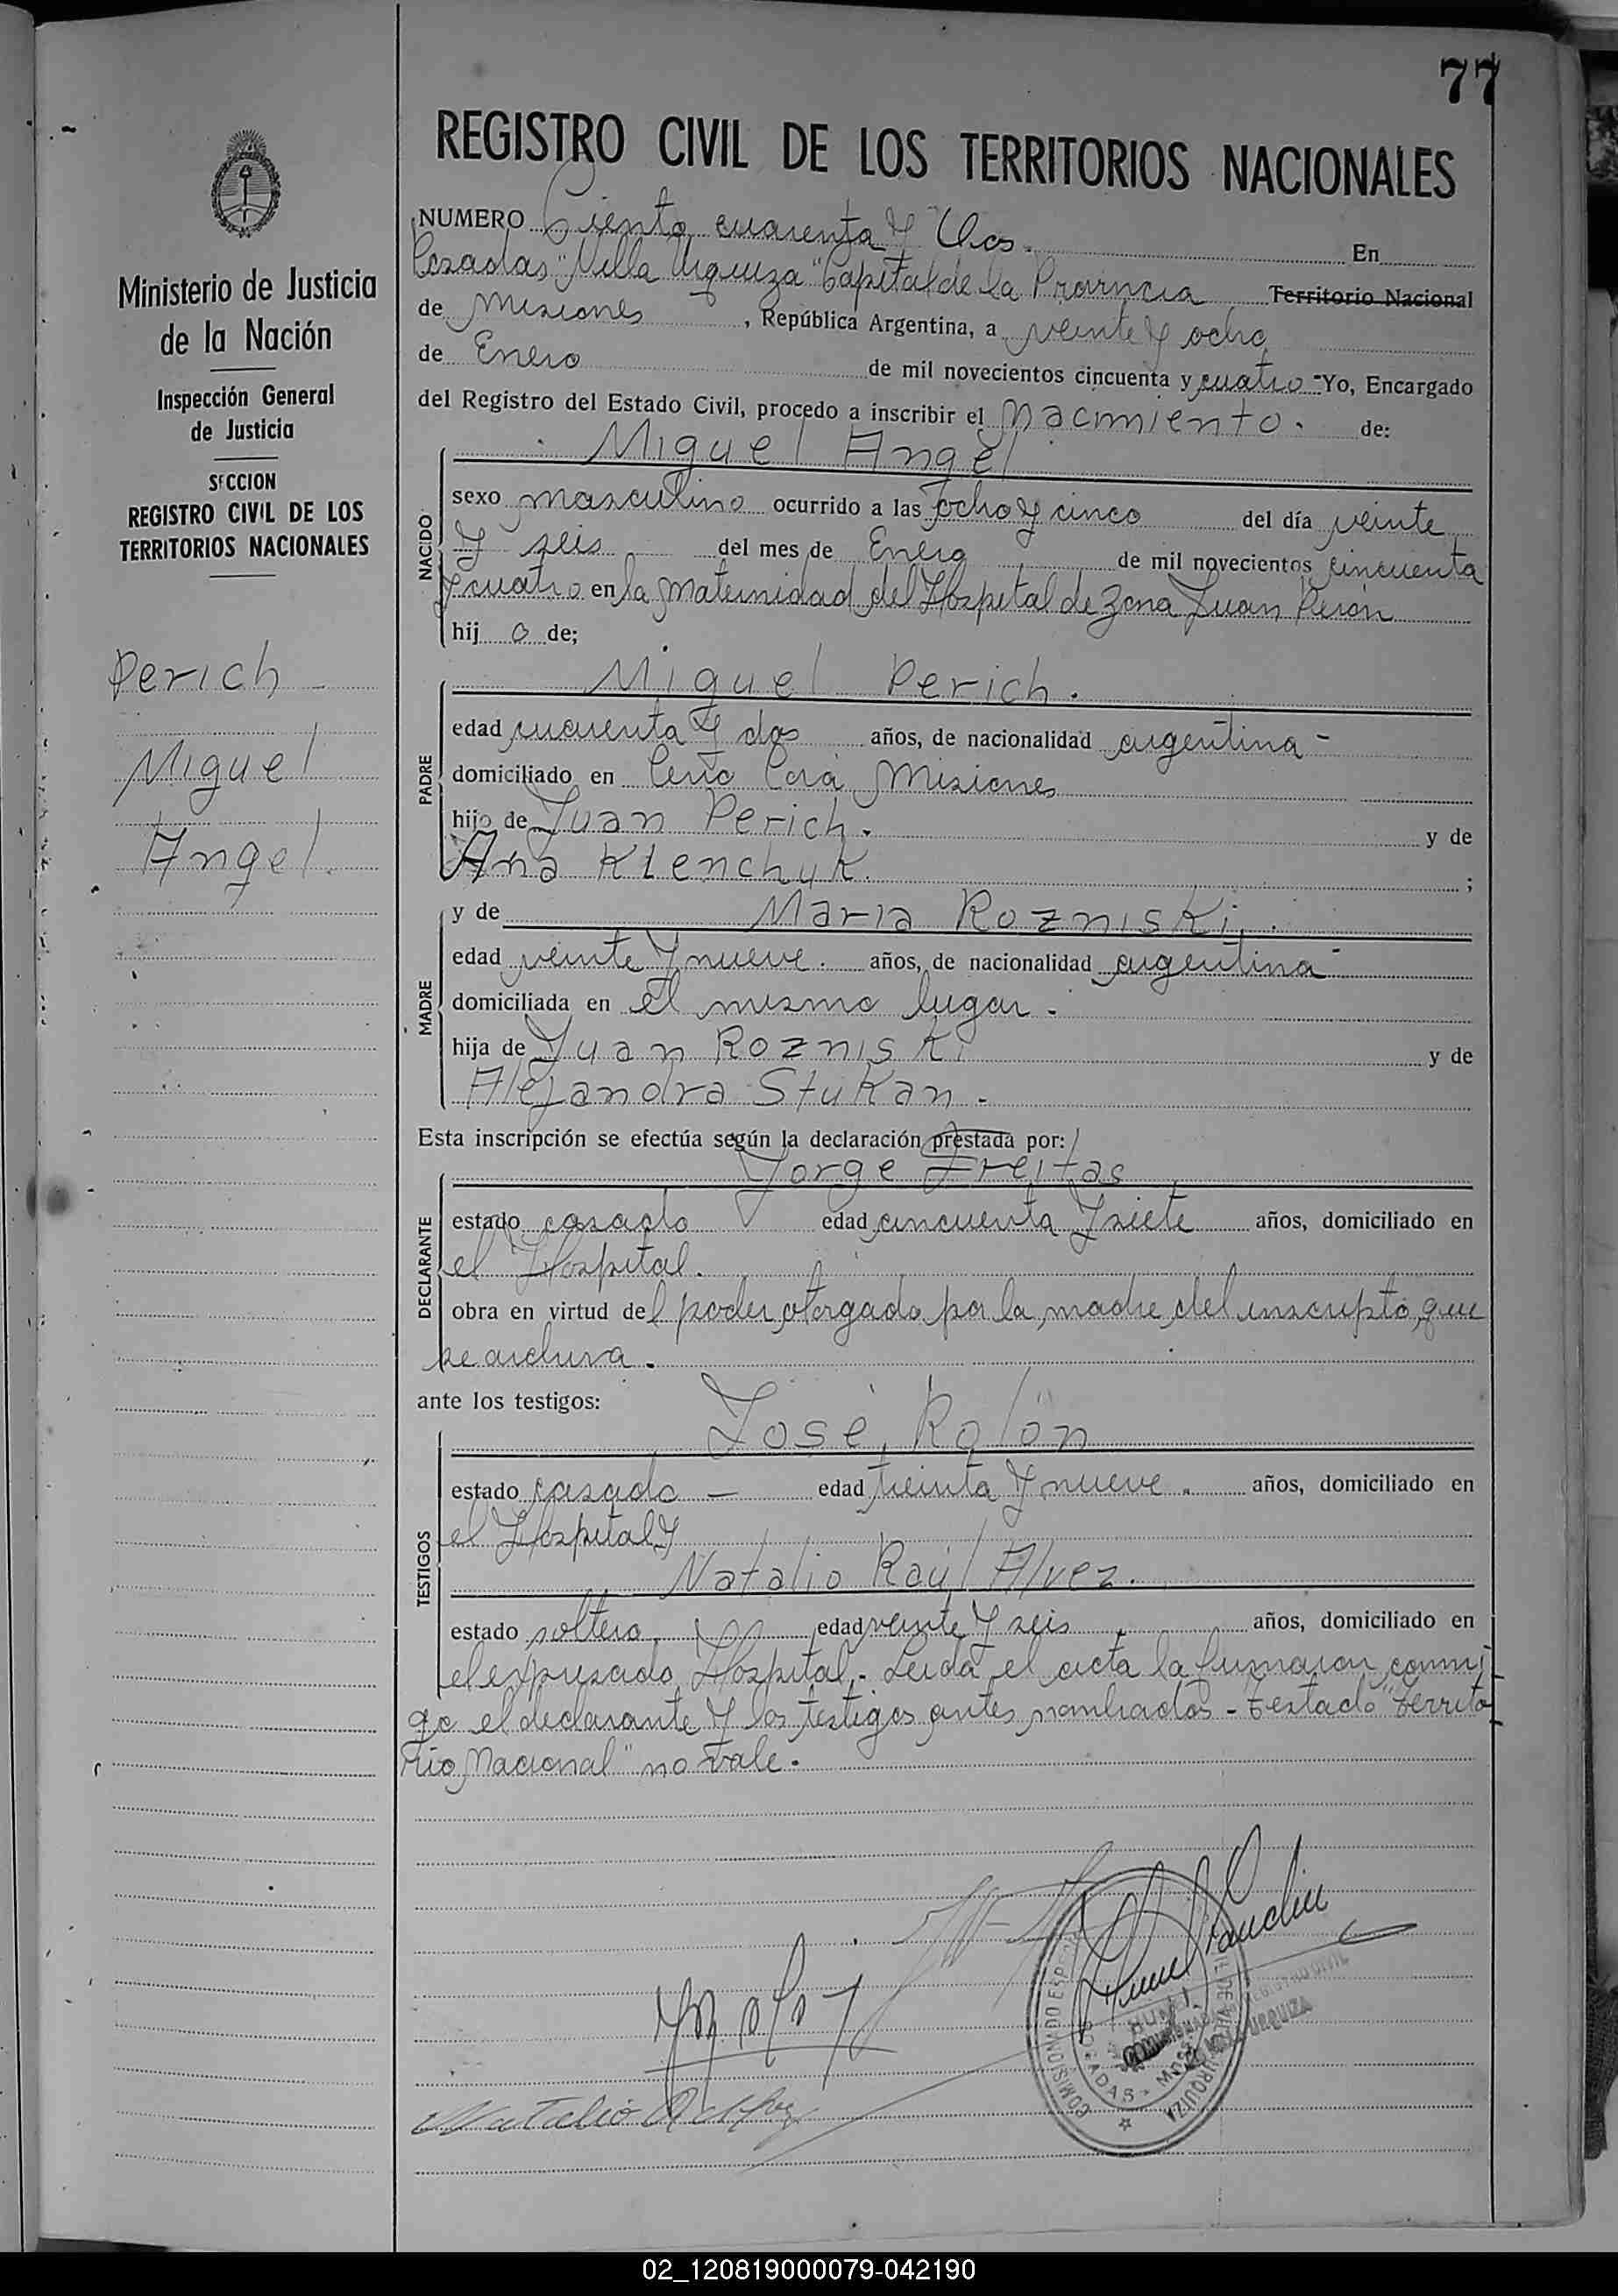 77
REGISTRO CIVIL DE LOS TERRITORIOS NACIONALES
Ministerio de Justicia
de la Nación
Inspección General
de Justicia
SECCION
REGISTRO CIVIL DE LOS
TERRITORIOS NACIONALES
Perich
Miguel
Angel.
NUMERO Ciento cuarenta y Dos. En
Posadas "Villa Urquiza" Capital de la Provincia Territorio Nacional
de Misiones, República Argentina, a veinte y ocho
de Enero de mil novecientos cincuenta y cuatro - Yo, Encargado
del Registro del Estado Civil, procedo a inscribir el Nacimiento. de:
Miguel Angel
NACIDO
sexo masculino ocurrido a las ocho y cinco del día veinte
y seis del mes de Enero de mil novecientos cincuenta
y cuatro en la Maternidad del Hospital de Zona Juan Perón
hij o de;
Miguel Perich.
PADRE
edad cuarenta y dos años, de nacionalidad argentina -
domiciliado en Cerro Corá, Misiones
hijo de Juan Perich. y de
Ana Klenchuk. ;
y de Maria Rozniski.
MADRE
edad veinte y nueve. años, de nacionalidad argentina -
domiciliada en el mismo lugar.
hija de Juan Rozniski y de
Alejandra Stukan.
Esta inscripción se efectúa según la declaración prestada por:
Jorge Freitas
DECLARANTE
estado casado edad cincuenta y siete años, domiciliado en
el Hospital.
obra en virtud del poder otorgado por la madre del inscripto, que
se archiva.
ante los testigos:
José Rolón
TESTIGOS
estado casado - edad treinta y nueve. años, domiciliado en
el Hospital y
Natalio Raúl Alvez.
estado soltero. edad veinte y seis años, domiciliado en
el expresado Hospital. - Leida el acta la firmaron conmi-
go el declarante y los testigos antes nombrados - Testado "Territo-
rio Nacional" no vale.
COMISIONADO
VILLA URQUIZA
02_120819000079-042190